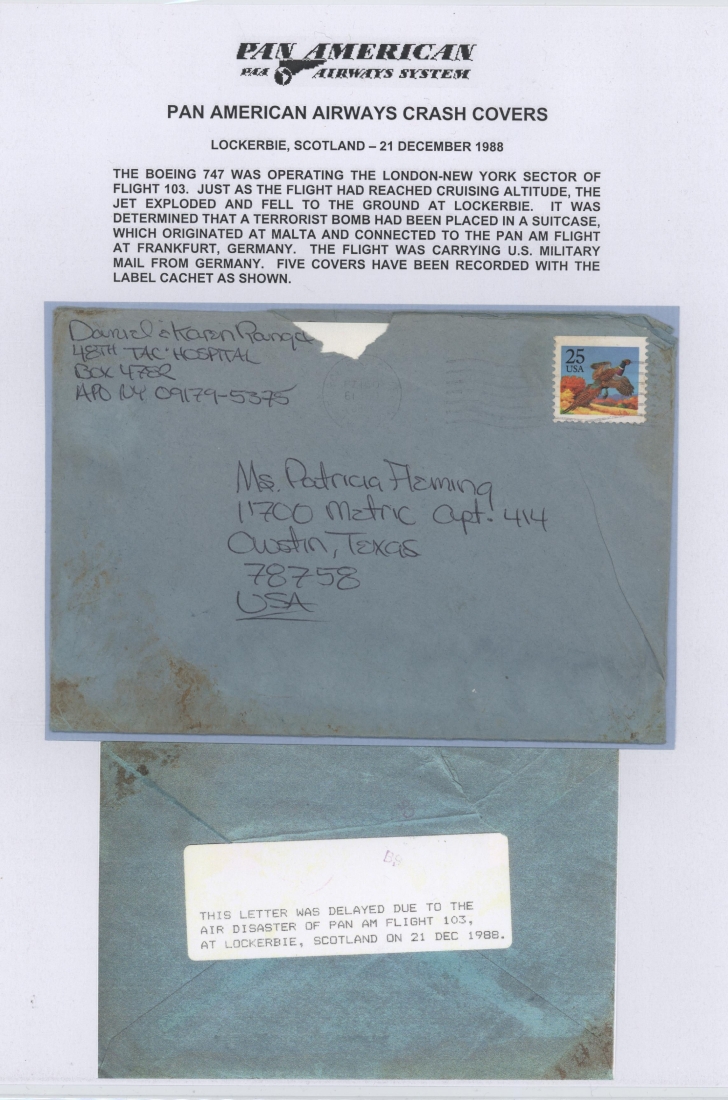 PAN AMERICAN
PAA AIRWAYS SYSTEM
PAN AMERICAN AIRWAYS CRASH COVERS
LOCKERBIE, SCOTLAND – 21 DECEMBER 1988
THE BOEING 747 WAS OPERATING THE LONDON-NEW YORK SECTOR OF
FLIGHT 103. JUST AS THE FLIGHT HAD REACHED CRUISING ALTITUDE, THE
JET EXPLODED AND FELL TO THE GROUND AT LOCKERBIE. IT WAS
DETERMINED THAT A TERRORIST BOMB HAD BEEN PLACED IN A SUITCASE,
WHICH ORIGINATED AT MALTA AND CONNECTED TO THE PAN AM FLIGHT
AT FRANKFURT, GERMANY. THE FLIGHT WAS CARRYING U.S. MILITARY
MAIL FROM GERMANY. FIVE COVERS HAVE BEEN RECORDED WITH THE
LABEL CACHET AS SHOWN.
Daniel & Karen
48TH TAC HOSPITAL
BOX 4782
APO NY 09179-5375
25
USA
Ms. Patricia Fleming
11700 Metric Apt. 414
Austin, Texas
78758
USA
THIS LETTER WAS DELAYED DUE TO THE
AIR DISASTER OF PAN AM FLIGHT 103,
AT LOCKERBIE, SCOTLAND ON 21 DEC 1988.